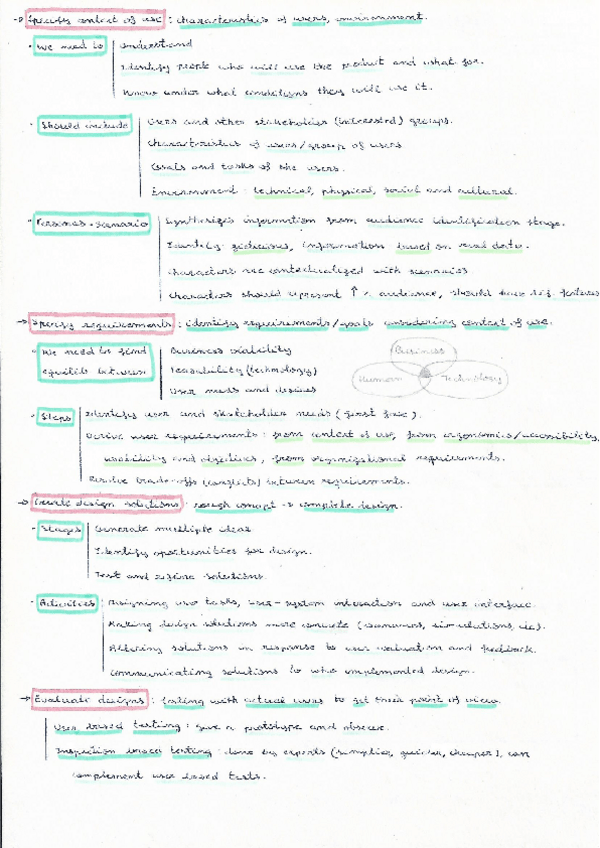 → Specify context of use : characteristics of users, environment.
· We need to | Understand
Identify people who will use the product and what for.
Know under what conditions they will use it.
· Should include | Users and other stakeholders (interested) groups.
Characteristics of users/group of users
Goals and tasks of the users.
Environment : technical, physical, social and cultural.
· Personas + scenario | Synthesizes information from audience identification stage.
information based on real data.
Characters are contextualized with scenarios
Characters should represent ↑ % audience, should have dif. features
→ Specify requirements : identify requirements/goals considering context of use.
· We need to find equilib between | Business viability
Feasability (technology)
User needs and desires
Business
Human
Technology
· Steps | Identify user and stakeholder needs (first face).
Derive user requirements : from context of use, from ergonomics/accessibility,
usability and objectives, from organizational requirements.
Resolve trade-offs (conflicts) between requirements.
→ Create design solutions : rough concept → complete design.
· Stages | Generate multiple ideas
Identify oportunities for design.
Test and refine solutions.
· Activities | Designing user tasks, user-system interaction and user interface.
Making design solutions more concrete (scenarios, simulations, etc).
Altering solutions in response to user evaluation and feedback.
Communicating solutions to who implemented design.
→ Evaluate designs : testing with actual users to get their point of view.
User based testing : give a prototype and observe.
Inspection based testing : done by experts (simplier, quicker, cheaper), can
complement user based tests.